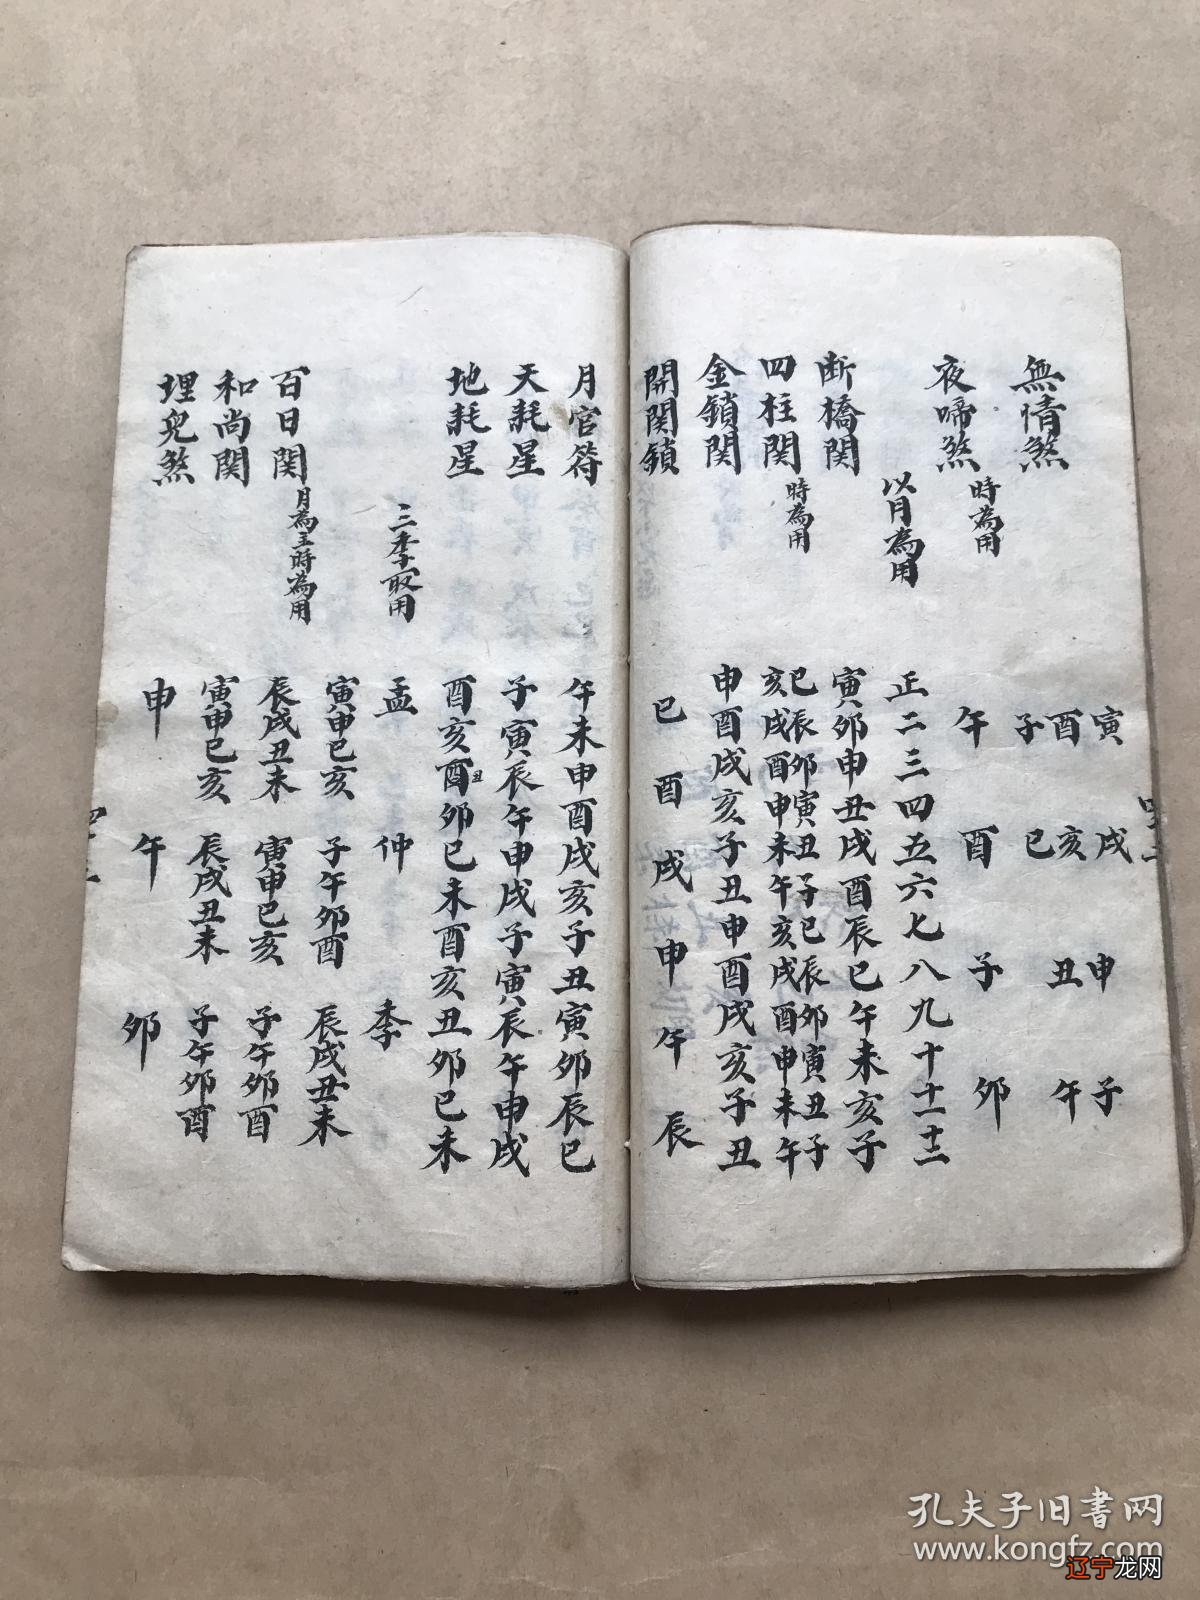 無情煞
寅 戌 申 子
酉 亥 丑 午
子 巳
夜啼煞 時為用 午 酉 子 卯
以月為用 正二三四五六七八九十十一十二
断橋関 寅卯申丑戌酉辰巳午未亥子
四柱関 時為用
巳辰卯寅丑子巳辰卯寅丑子
亥戌酉申未午亥戌酉申未午
金鎖関 申酉戌亥子丑申酉戌亥子丑
開関鎖 巳 酉 戌 申 午 辰
月官符 午未申酉戌亥子丑寅卯辰巳
天耗星 子寅辰午申戌子寅辰午申戌
地耗星 酉亥酉丑卯巳未酉亥丑卯巳未
三季取用 孟 仲 季
百日関 月為主時為用 寅申巳亥 子午卯酉 辰戌丑未
辰戌丑未 寅申巳亥 子午卯酉
和尚関 寅申巳亥 辰戌丑未 子午卯酉
埋兒煞 申 午 卯
孔夫子旧书网
www.kongfz.com
辽宁龙网